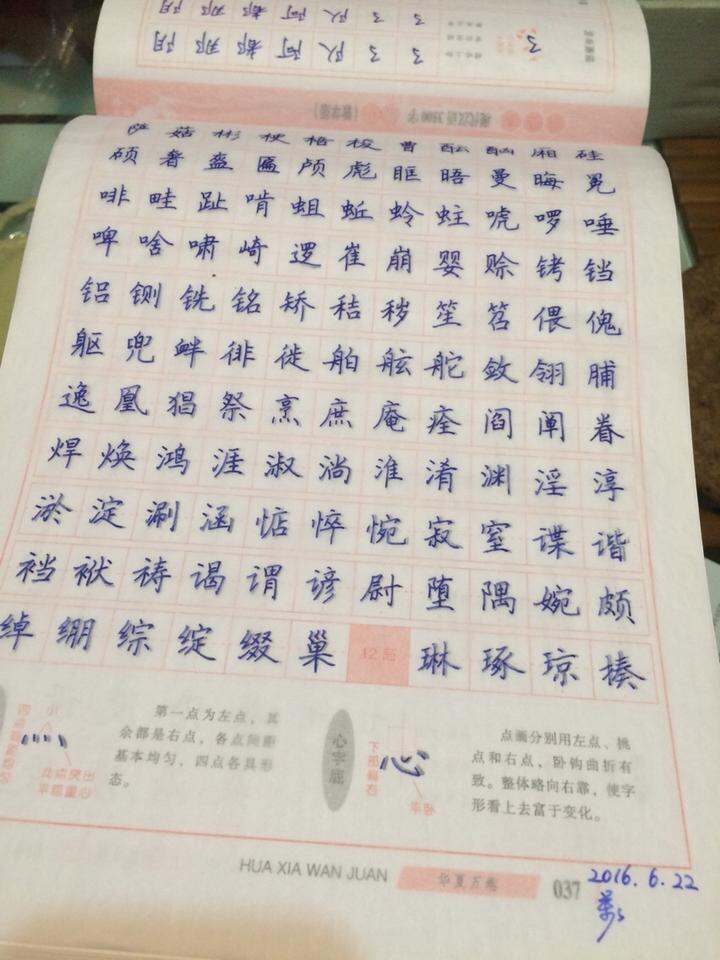 3 队 阿 都 那 阴
现代汉语 3500 字
萨 菇 彬 梗 梧 梭 曹 酝 酗 厢 硅
硕 奢 盔 匾 颅 彪 眶 晤 曼 晦 冕
啡 畦 趾 啃 蛆 蚯 蛉 蛀 唬 啰 唾
啤 啥 啸 崎 逻 崔 崩 婴 赊 铐 铛
铝 铡 铣 铭 矫 秸 秽 笙 笤 偎 傀
躯 兜 衅 徘 徙 舶 舷 舵 敛 翎 脯
逸 凰 猖 祭 烹 庶 庵 痊 阎 阐 眷
焊 焕 鸿 涯 淑 淌 淮 淆 渊 淫 淳
淤 淀 涮 涵 惦 悴 惋 寂 窒 谍 谐
裆 袱 祷 谒 谓 谚 尉 堕 隅 婉 颇
绰 绷 综 绽 缀 巢 12画 琳 琢 琼 揍
第一点为左点，其
余都是右点，各点间距
基本均匀，四点各具形
态。
心字底
心
点画分别用左点、挑
点和右点，卧钩曲折有
致。整体略向右靠，使字
形看上去富于变化。
HUA XIA WAN JUAN
华夏万卷
037
2016.6.22